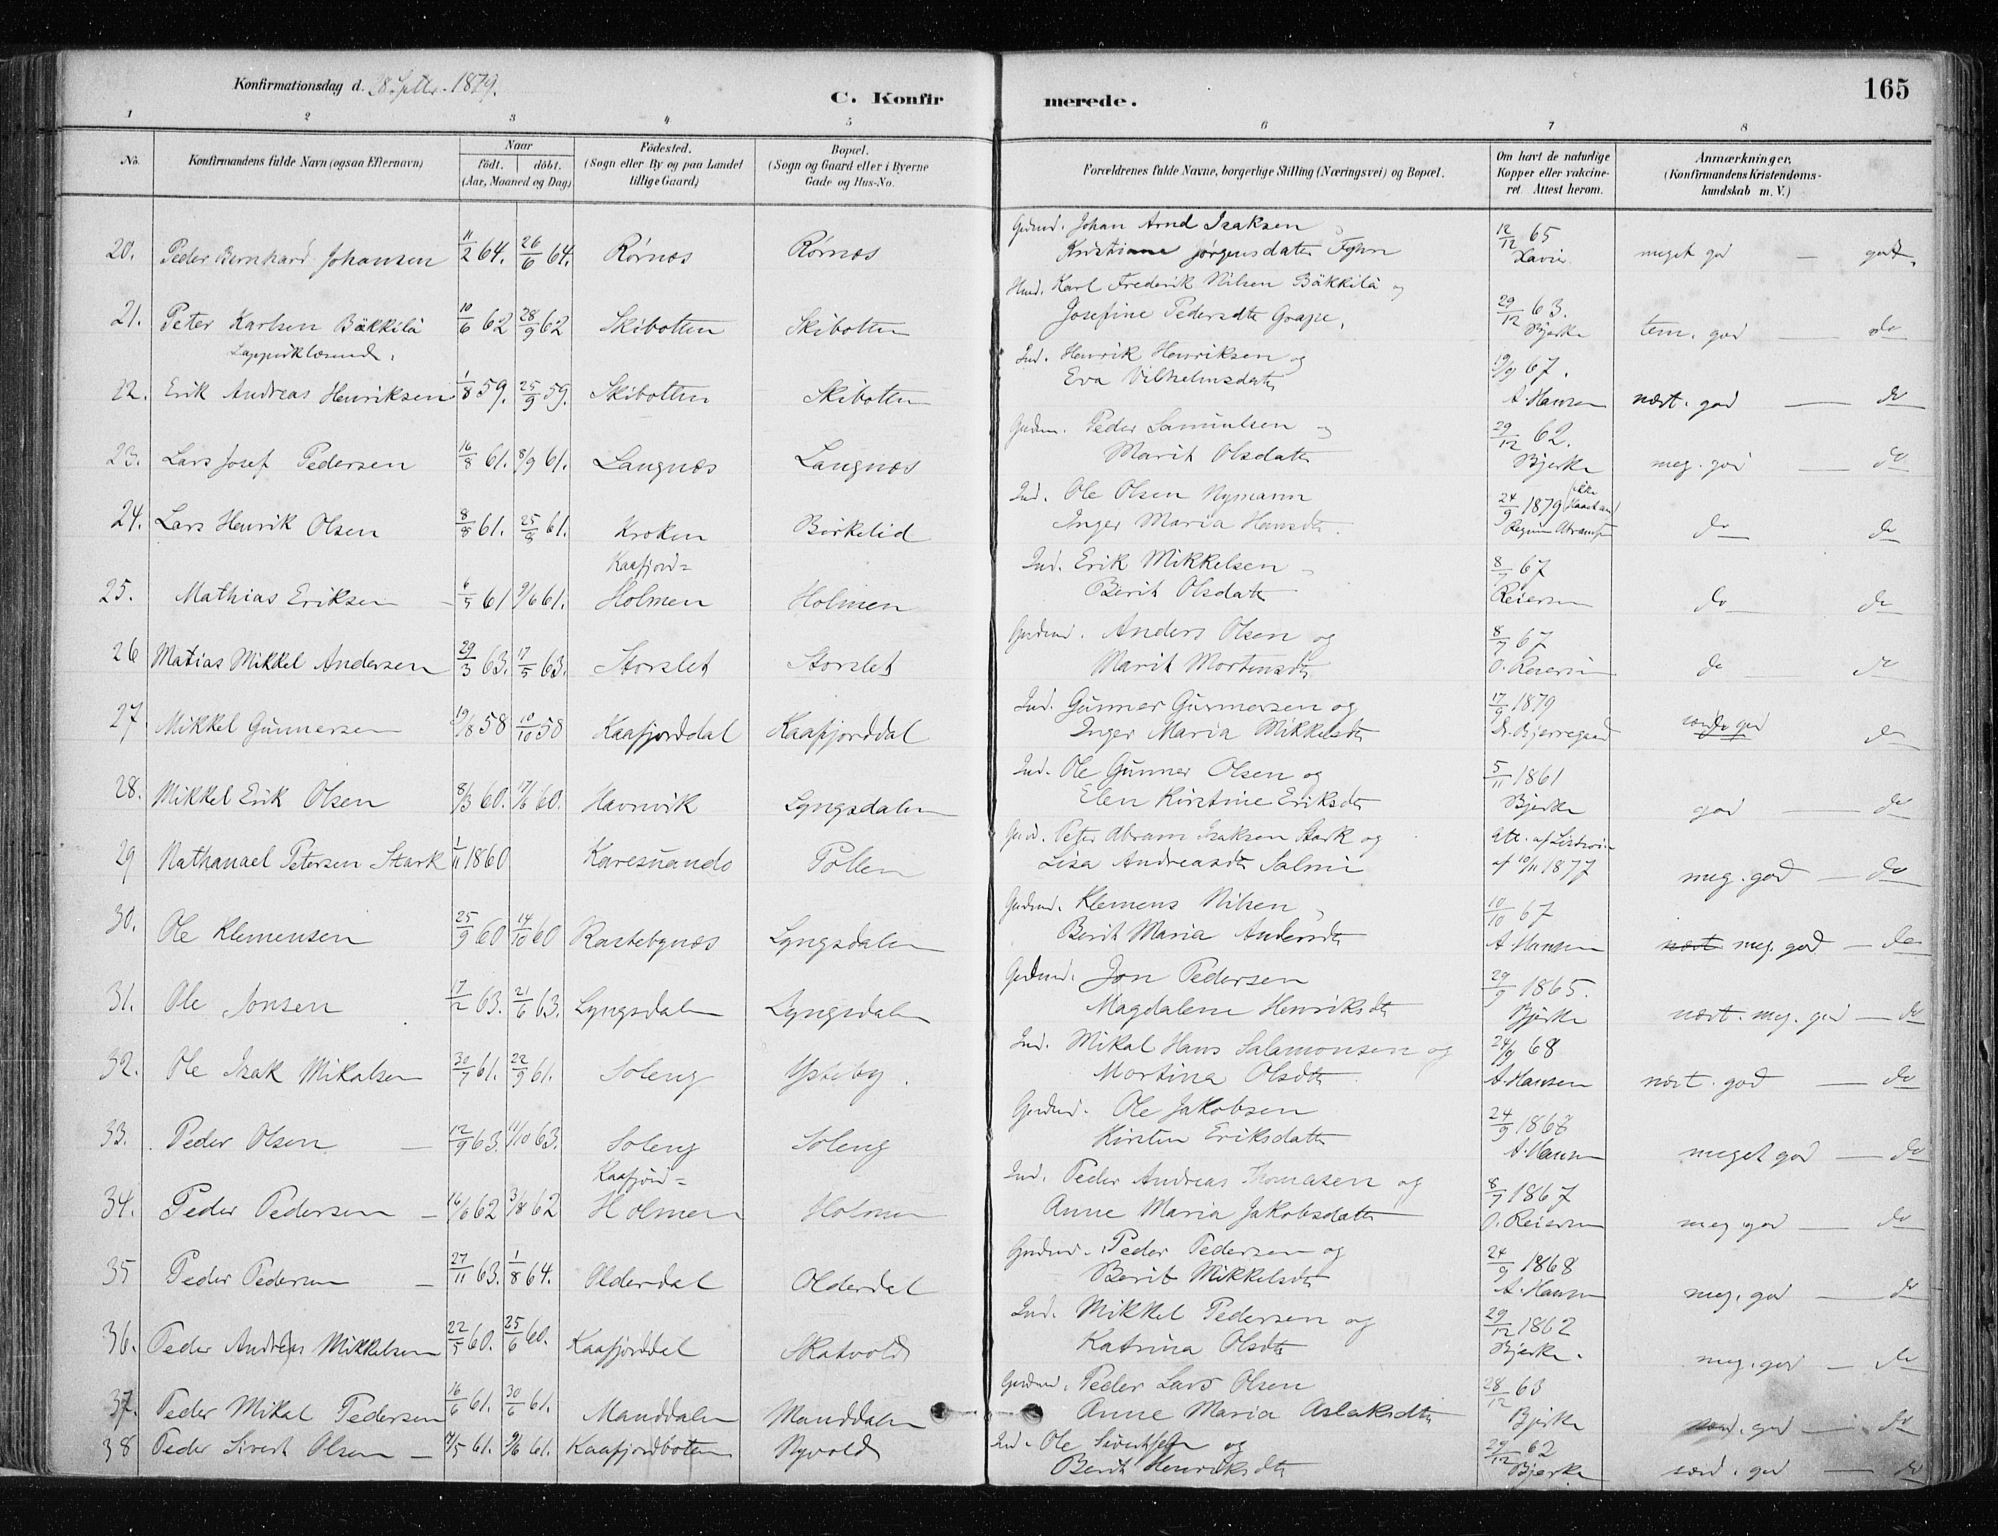 Konfirmationsdag d. 28 Septbr. 1879.
C. Konfirmerede.
165
1 2 3 4 5 6 7 8
No. Konfirmandens fulde Navn (ogsaa Efternavn) Naar født. døbt. (Aar, Maaned og Dag) Fødested. (Sogn eller By og paa Landet tillige Gaard) Bopæl. (Sogn og Gaard eller i Byerne Gade og Hus-No. Forældrenes fulde Navne, borgerlige Stilling (Næringsvei) og Bopæl. Om havt de naturlige Kopper eller vakcineret. Attest herom. Anmærkninger, (Konfirmandens Kristendomskundskab m. V.)
20. Peder Bernhard Johansen 11/2 64. 26/6 64. Rørnæs Rørnæs Grdmd. Johan Arnd Isaksen Kristiane Jørgensdatter Fyhn 12/12 65 meget god — godt.
21. Peter Karlsen Bäkkilä 10/6 62 28/9 62 Skibotten Skibotten Hmd. Karl Frederik Nilsen Bäkkilä og Josefine Pedersdtr Grape, 29/12 63. Bjerke tem. god — do
22. Erik Andreas Henriksen 1/8 59. 25/9 59. Skibotten Skibotten Ind. Henrik Henriksen og Eva Vilhelmsdatr 19/9 67. A. Hansen nært. god — do
23. Lars Josef Pedersen 16/8 61. 8/9 61. Langnæs Langnæs Grdm. Peder Samuelsen og Marit Olsdatr 29/12 62. Bjerke meg. god — do
24. Lars Henrik Olsen 8/8 61. 25/8 61. Kroken Birkelid Ind. Ole Olsen Nymann Inger Maria Hansdtr. 24/9 1879 do do
25. Mathias Eriksen — 6/5 61 9/6 61. Kaafjord= Holmen Holmen Ind. Erik Mikkelsen Berit Olsdatr 8/7 67 Reiersen do do
26 Matias Mikkel Andersen 29/3 63. 17/5 63. Storslet Storslet Grdmd. Anders Olsen og Marit Mortensdtr 8/7 67 O. Reiersen do do
27. Mikkel Gunnersen 19/8 58 10/10 58 Kaafjorddal Kaafjorddal Ind. Gunner Gunnersen og Inger Maria Mikkelsdtr 17/9 1879 Dr. Bjerregaard god do
28. Mikkel Erik Olsen 8/3 60. 17/6 60. Havnvik Lyngsdalen Ind. Ole Gunner Olsen og Elen Kirstine Eriksdtr 5/11 1861 Bjerke god — do
29 Nathanael Petersen Stark 1/11 1860 Karesuando Pollen Grmd. Peter Abram Isaksen Stark og Lisa Andreasdtr Salmi Att. af af 10/11 1877 meg. god — do
30. Ole Klemensen 25/9 60 14/10 60 Rastebynæs Lyngsdalen Grdmd. Klemens Nilsen, Berit Maria Andersdtr 10/10 67 A. Hansen nært meg. god — do
31. Ole Jonsen 17/2 63. 21/6 63. Lyngsdalen Lyngsdalen Grdmd. Jon Pedersen Magdalene Henriksdtr 29/9 1865. Bjerke nært. meg. god — do
32. Ole Isak Mikalsen 30/7 61. 22/9 61. Soleng Ysteby. Ind. Mikal Hans Salamonsen og Mortina Olsdtr 24/9 68 A. Hansen nært. god — do
33. Peder Olsen — 12/9 63. 11/10 63. Soleng Soleng Grdmd. Ole Jakobsen Kirsten Eriksdatr 24/9 1868 A. Hansen meget god — do
34. Peder Pedersen — 16/6 62 3/8 62 Kaafjord= Holmen Holmen Ind. Peder Andreas Thomasen og Anne Maria Jakobsdatr 8/7 1867 O. Reiersen meg. god — do
35 Peder Pedersen — 27/11 63. 1/8 64. Olderdal Olderdal Grdmd. Peder Pedersen og Berit Mikkelsdtr 24/9 1868 A. Hansen meg. god — do
36. Peder Andreas Mikkelsen 22/5 60. 25/6 60. Kaafjorddal Skatvold Ind. Mikkel Pedersen og Katrina Olsdtr 29/12 1862 Bjerke. meg. god — do
37. Peder Mikal Pedersen 16/6 61. 30/6 61. Manddalen Manddalen Grdmd. Peder Lars Olsen Anne Maria Aslaksdtr 28/12 63 Bjerke god — do
38 Peder Sivert Olsen — 9/6 61. Kaafjordboten Nyvold Ind. Ole Sivertsen og Berit Henriksdtr 29/12 62 Bjerke god — do